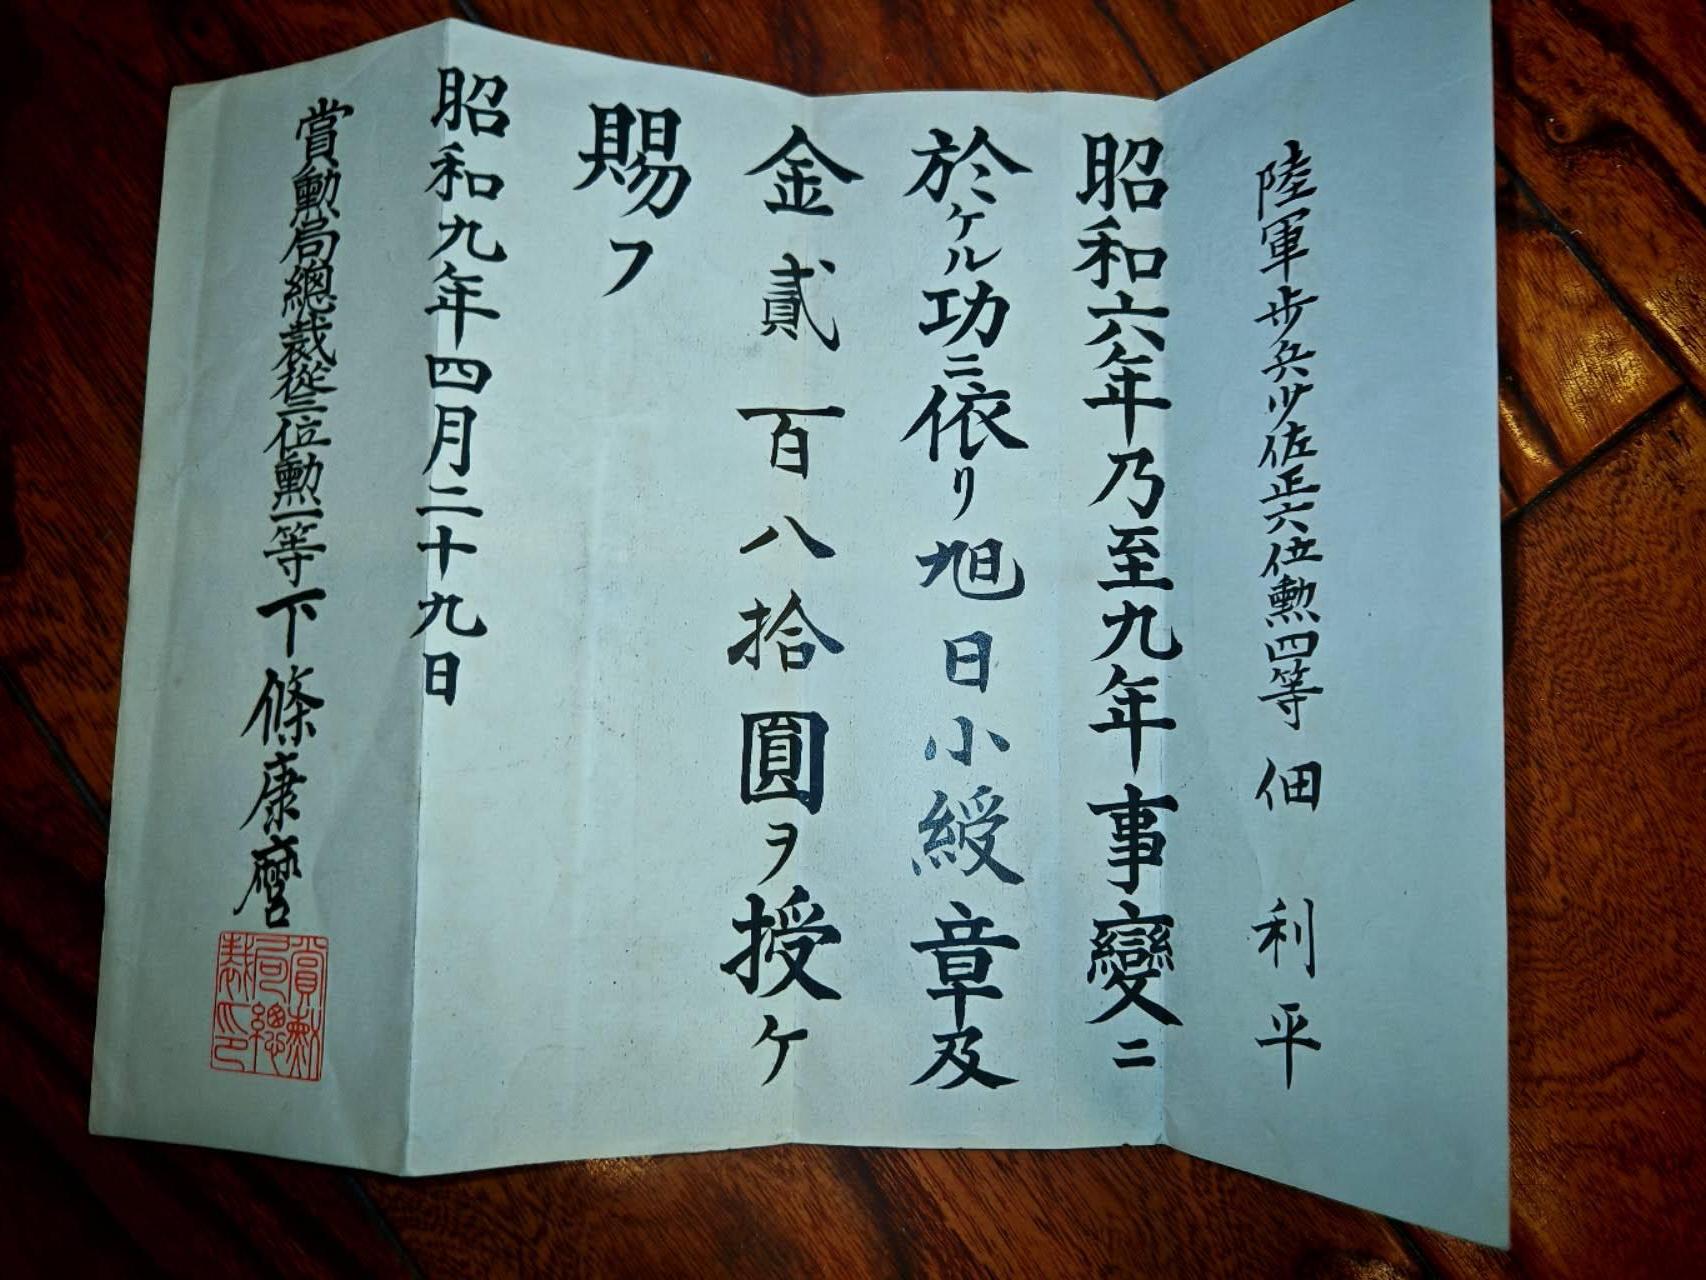 陸軍步兵少佐正六位勲四等佃利平
昭和六年乃至九年事變ニ
於ケル功ニ依リ旭日小綬章及
金貳百八拾圓ヲ授ケ
賜フ
昭和九年四月二十九日
賞勲局總裁從三位勲一等下條康麿
賞勲局總裁印